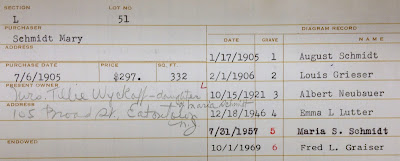 SECTION LOT NO.
L 51
PURCHASER DIAGRAM RECORD
Schmidt Mary DATE GRAVE NAME
ADDRESS
1/17/1905 1 August Schmidt
PURCHASE DATE PRICE SQ. FT. 2/1/1906 2 Louis Grieser
7/6/1905 $297. 332
PRESENT OWNER L 10/15/1921 3 Albert Neubauer
Mrs. Tillie Wyckoff - daughter
ADDRESS 12/18/1946 4 Emma L Lutter
165 Broad St. Eatontown N.J.
7/31/1957 5 Maria S. Schmidt
ENDOWED 10/1/1969 6 Fred L. Graiser